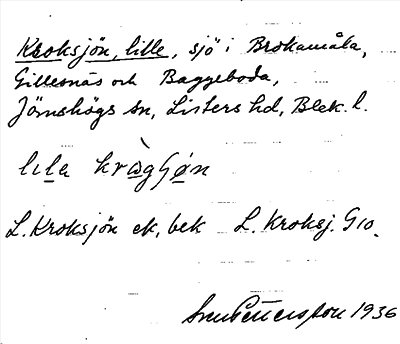 Kroksjön, lille, sjö i Brokamåla,
Gillesnäs och Baggeboda,
Jämshögs sn, Listers hd, Blek. l.
lila kràgʃøn
L. Kroksjön ek, bek L. Kroksj. G10.
Sven Pettersson 1936